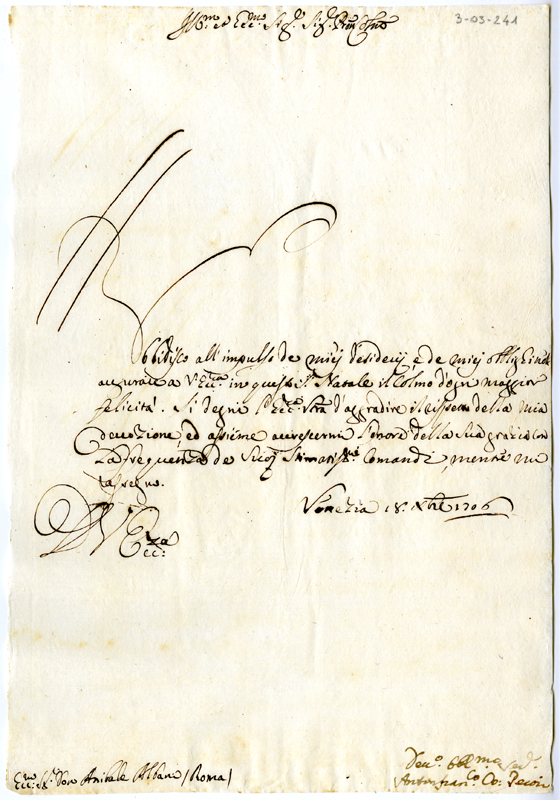 3-03-241
Ill.mo et Ecc.mo Sig.r Sig.r P.ron Col.mo
Obbidisco all'impulso de miej desiderij, e de miej oblighi nel
augurare a V. Ecc.za in queste S.te Natale il Colmo d'ogni maggior
felicità. Si degni l'Ecc.za V.tra d'aggradire il della mia
devozione, ed assieme accrescermi l'honore della Sua grazia con
la frequenza de Suoj Stimatiss.mi Comandi, mentre mi
rassegno.
Venezia 18. Xbre 1706
D V. Ecc.za
Ecc.mo S.r Don Anibale Albano (Roma)
Deu.o Obl.mo Ser.
Antonfran.co Co: